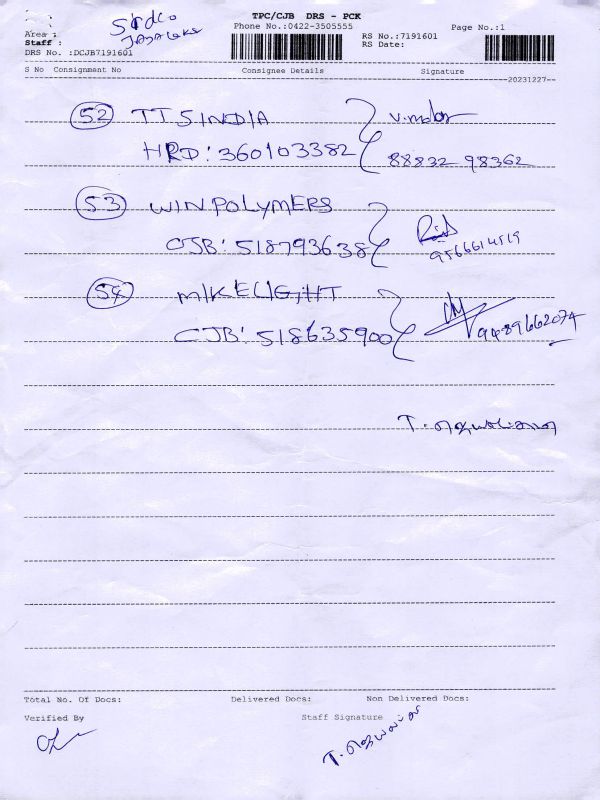 TPC/CJB DRS - PCK
Phone No.:0422-3505555
Page No.:1
Area :
Staff :
DRS No. :DCJB7191601
RS No.:7191601
RS Date:
S No Consignment No Consignee Details Signature
20231227
52 TTS INDIA
HRD: 360103382 88832 98362
53 WIN POLYMERS
CJB: 518793638 9566614519
54 MIKELIGHT
CJB: 518635900 9489662074
Total No. Of Docs: Delivered Docs: Non Delivered Docs:
Verified By Staff Signature